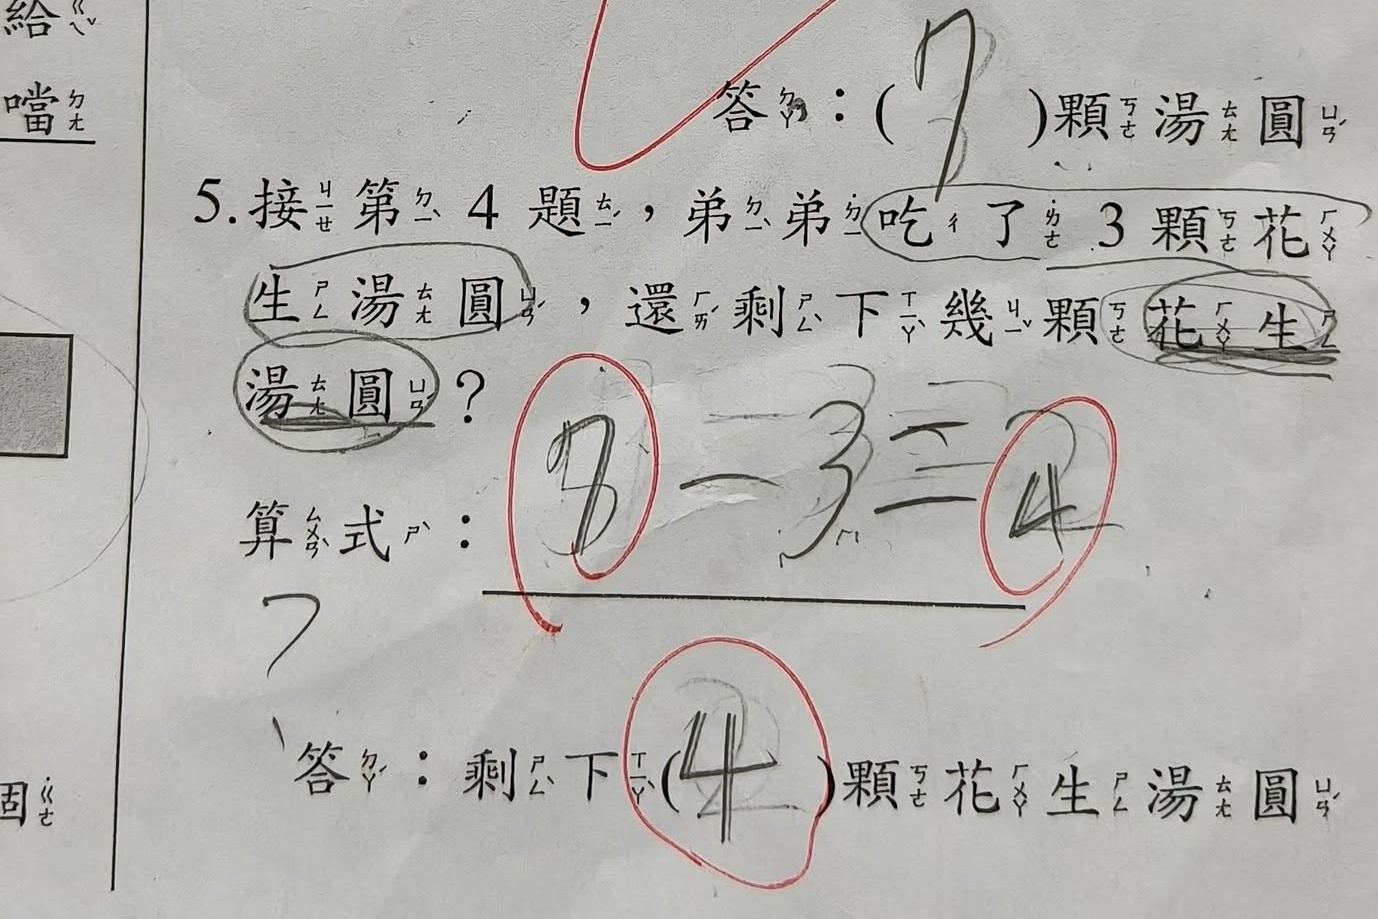 給ㄍㄟˇ
噹ㄉㄤ
答ㄉㄚˊ：(7)顆ㄎㄜ湯ㄊㄤ圓ㄩㄢˊ
5.接ㄐㄧㄝ第ㄉㄧˋ4題ㄊㄧˊ，弟ㄉㄧˋ弟˙ㄉㄧ吃ㄔ了˙ㄌㄜ3顆ㄎㄜ花ㄏㄨㄚ
生ㄕㄥ湯ㄊㄤ圓ㄩㄢˊ，還ㄏㄞˊ剩ㄕㄥˋ下ㄒㄧㄚˋ幾ㄐㄧˇ顆ㄎㄜ花ㄏㄨㄚ生ㄕㄥ
湯ㄊㄤ圓ㄩㄢˊ？
算ㄙㄨㄢˋ式ㄕˋ：7-3=4
7
答ㄉㄚˊ：剩ㄕㄥˋ下ㄒㄧㄚˋ(4)顆ㄎㄜ花ㄏㄨㄚ生ㄕㄥ湯ㄊㄤ圓ㄩㄢˊ